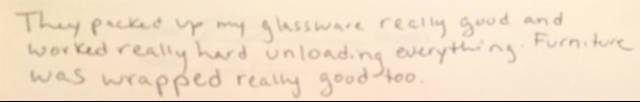 They packed up my glassware really good and
worked really hard unloading everything. Furniture
was wrapped really good too.